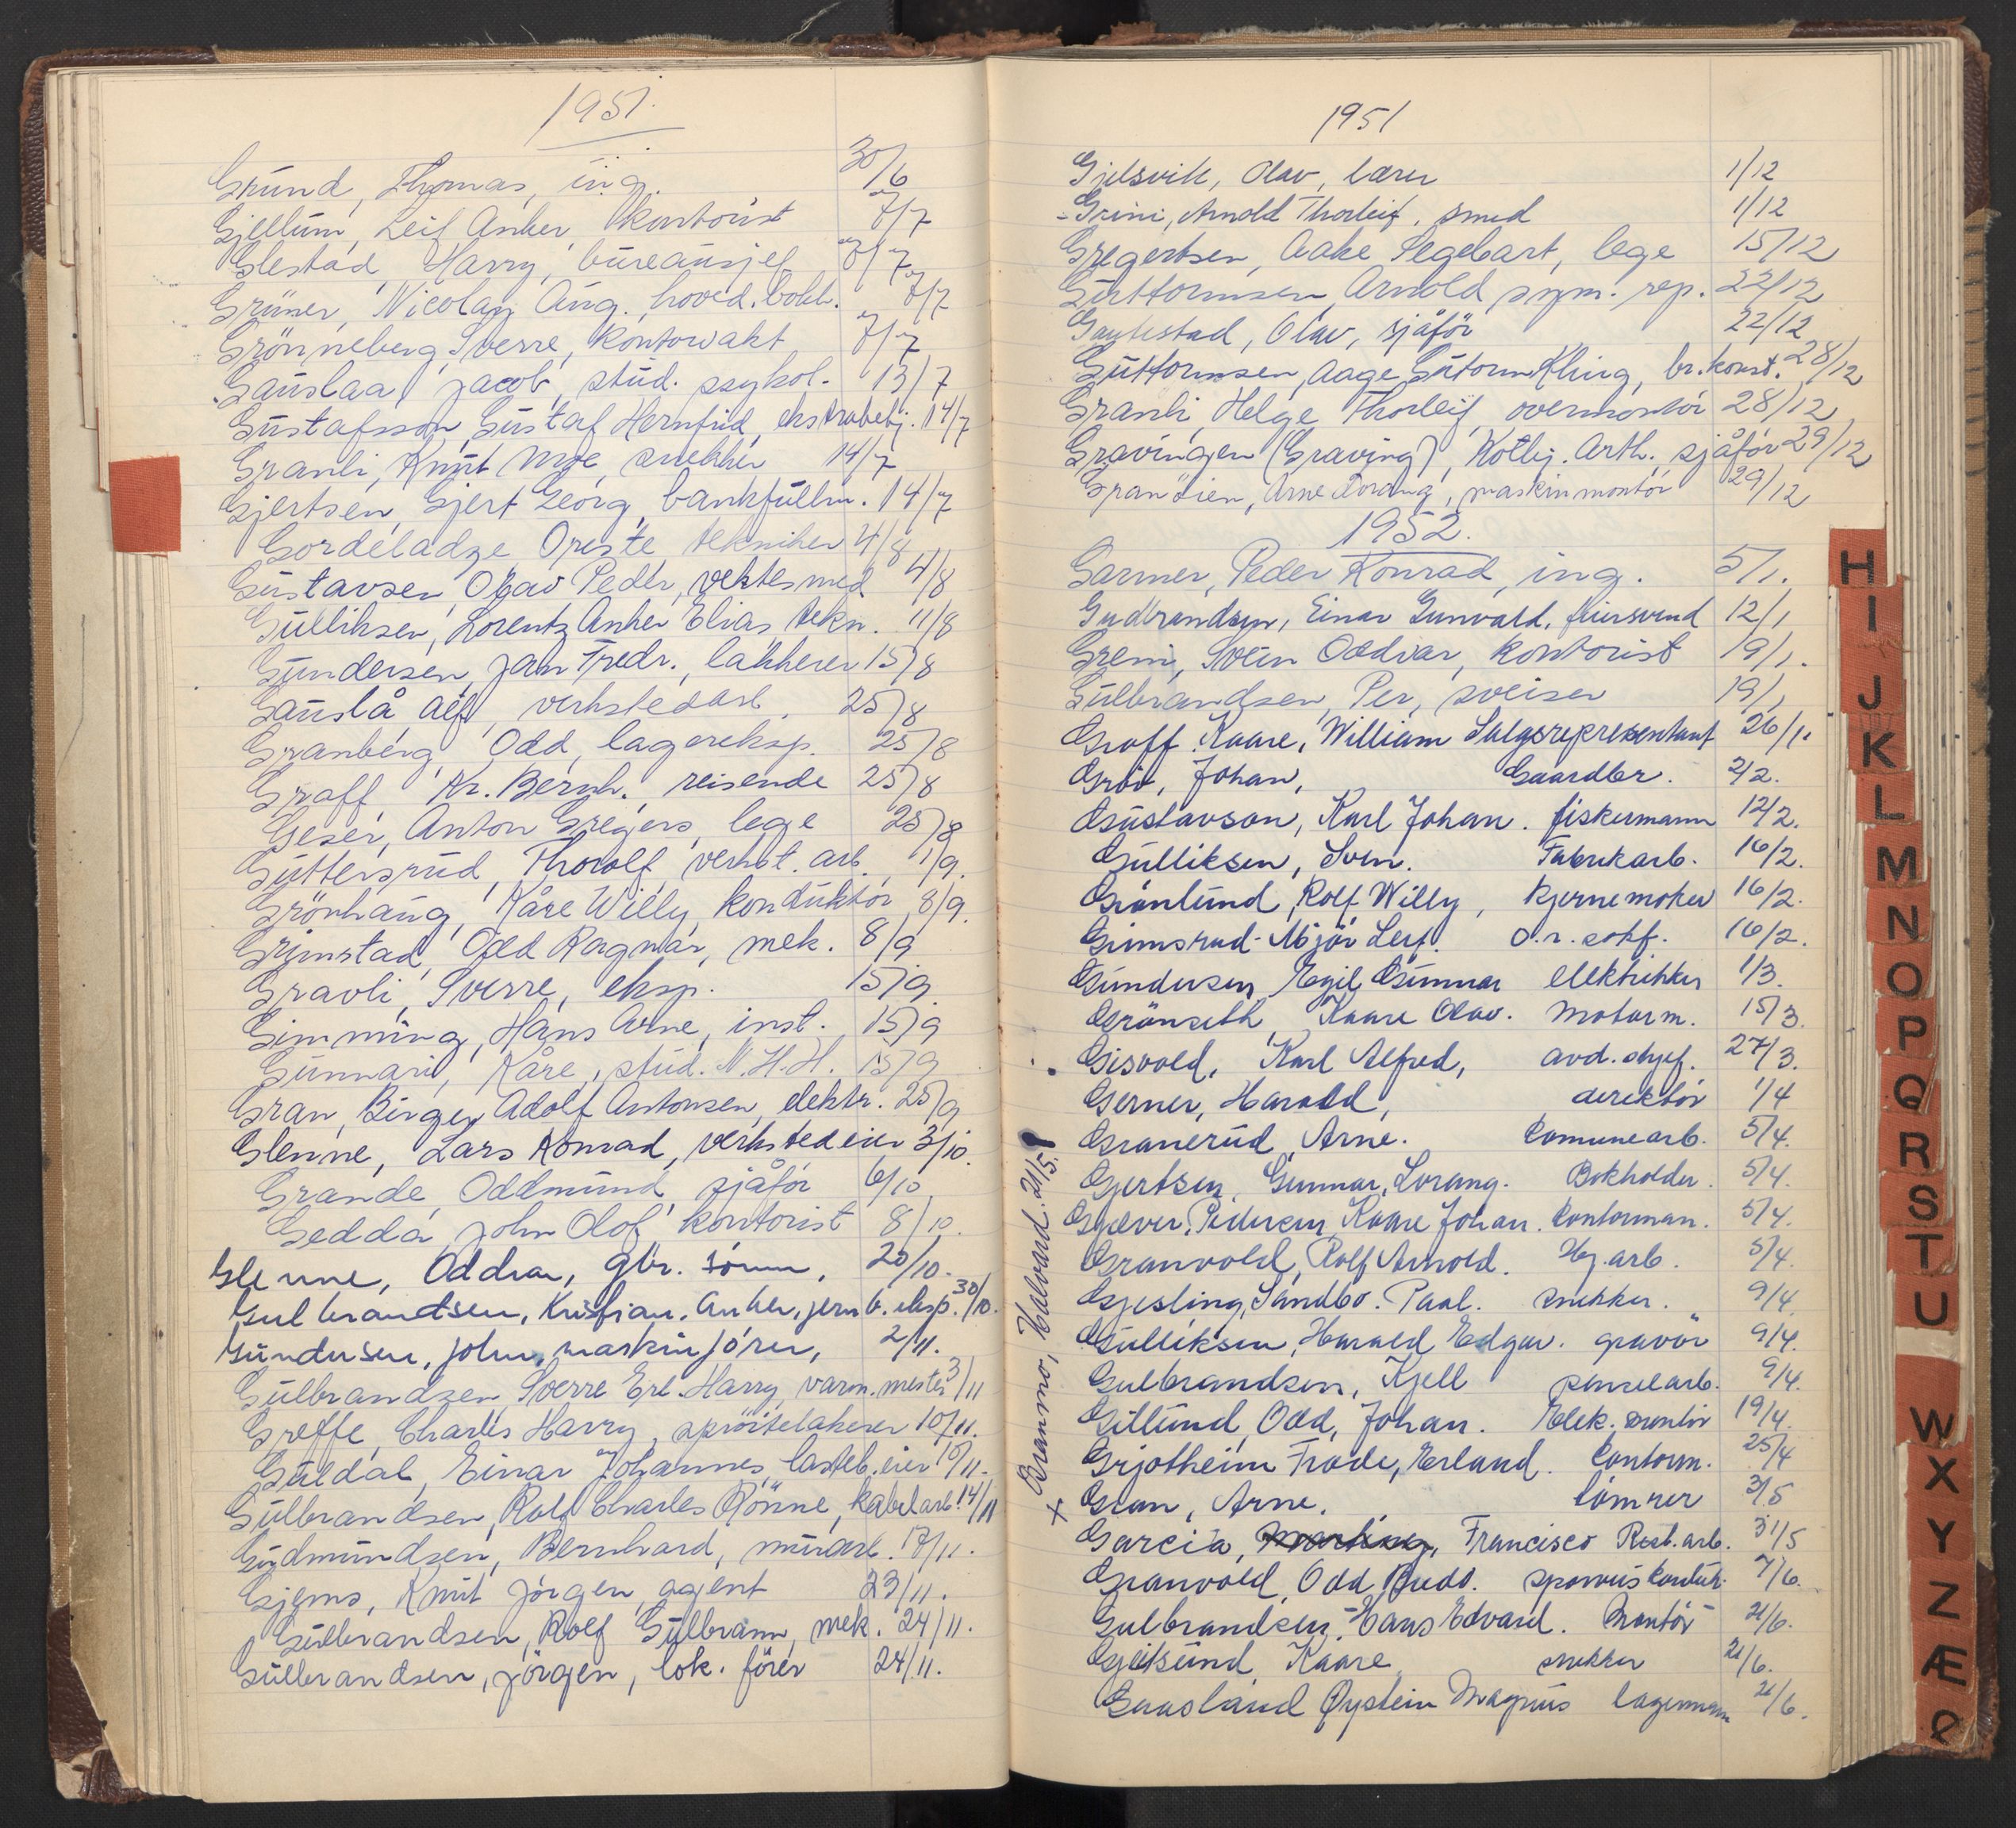 1951.
Grund, Thomas, ing. 30/6
Gjellum, Leif Anker, kontorist 7/7
Glestad, Harry, bureausjef 7/7
Grüner, Nicolay Aug., hoved.bokh. 7/7
Grönneberg, Sverre, kontorvakt 7/7
Gauslaa, Jacob, stud. psykol. 13/7
Gustafsson, Gustaf Hernfrid, ekstrabetj. 14/7
Granli, Knut Moe, snekker 14/7
Gjertsen, Gjert Georg, bankfullm. 14/7
Gordeladze Oreste tekniker 4/8
Gustavsen, Olav Peder, vektesmed 4/8
Gulliksen, Lorentz Anker Elias tekn. 11/8
Gundersen, Jan Fredr., lakkerer 15/8
Gauslå Alf, verkstedarb. 25/8
Granberg, Odd, lagereksp. 25/8
Graff, Kr. Bernh. reisende 25/8
Geser, Anton Gregers, lege 25/8
Guttersrud, Thorolf, verkst. arb., 1/9.
Grönhaug, Kåre Willy, konduktör 8/9.
Grimstad, Odd Ragnar, mek. 8/9
Gravli, Sverre, eksp. 15/9
Gimming, Hans Arne, inst. 15/9
Gunnari, Kåre, stud. N.H.H. 15/9
Gran, Birger Adolf Antonsen, elektr. 25/9
Glenne, Lars Konrad, verksted eier 3/10.
Grande, Oddmund, sjåför 6/10
Gedda, John Olof, kontorist 8/10.
Glenne, Oddvar, gbr. sönn, 20/10.
Gulbrandsen, Kristian Anker, jernb. eksp. 30/10.
Gundersen, John, maskinfører, 2/11.
Gulbrandsen, Sverre Erl. Harry, varm. mester 3/11
Greffe, Charles Harry, spröitelakerer 10/11.
Guldal, Einar Johannes, lasteb. eier 10/11.
Gulbrandsen, Rolf Charles Rönne, kabelarb. 14/11
Gudmundsen, Bernhard, murarb. 17/11.
Gjems, Knut Jörgen, agent 23/11.
Gulbrandsen, Rolf Gulbrann, mek. 24/11.
Gulbrandsen, Jörgen, lok. förer 24/11.
1951
Gjelsvik, Olav, lærer 1/12
-Grini, Arnold Thorleif, smed 1/12
Gregertsen, Aake Segebart, lege 15/12
Guttormsen, Arnold, sym. rep. 22/12
Gautestad, Olav, sjåför 22/12
Guttormsen, Aage Gutorm Kling, br.konst. 28/12
Granli, Helge Thorleif, overmontör 28/12
Gravingen (Graving), Kolbj. Arth. sjåför 29/12
Granlien, Arne Lorang, maskinmontör 29/12
1952.
Garmer, Peder Konrad, ing. 5/1.
Gudbrandsen, Einar Gunvald, feiersvend 12/1
Greni, Svein Oddvar, kontorist 19/1.
Gulbrandsen, Per, sveiser 19/1
Graff, Kaare, William Salgsrepresentant 26/1.
Grov, Johan, Gaardbr. 2/2.
Gustavson, Karl Johan. fiskermann 12/2.
Gulliksen, Sven. Fabrikarb. 16/2.
Grönlund, Rolf Willy, kjernemaker 16/2.
Gimsrud-Mjör Leif. o.r. sakf. 16/2.
Gundersen, Egil Gunnar elektriker 1/3.
Grönseth, Kaare Olav. motorm. 15/3.
Gisvold, Karl Alfred, avd. sjef. 27/3.
Gerner, Harald, direktör 1/4
Granerud, Arne. komunearb. 5/4.
Gjertsen, Gunnar, Lorang. Bokholder. 5/4.
Gjæver, Pedersen Kaare Johan. kontorman. 5/4.
Granvold, Rolf Arnold. Hj. arb. 5/4.
Gjesling, Sandbo. Paal. snekker. 9/4.
Gulliksen, Harald Edgar. gravör 9/4.
Gulbrandsen, Kjell penselarb. 9/4.
Gillund, Odd, Johan. Elek. montör 19/4.
Grjotheim Frode, Erland. kontorm. 25/4
Gran, Arne. tömrer 3/5
Garcia, Francisco Rest. arb. 31/5
Granvold, Odd, Budd. sporveiskonduk. 7/6.
Gulbrandsen, Hans Edvard. Montör 21/6.
Gjeitsund, Kaare snekker 21/6.
Gaasland Øystein Magnus lagermann 21/6.
+ Branmo, Halvard. 21/5.
H
I
J
K
L
M
N
O
P
Q
R
S
T
U
W
X
Y
Z
Æ
Ø